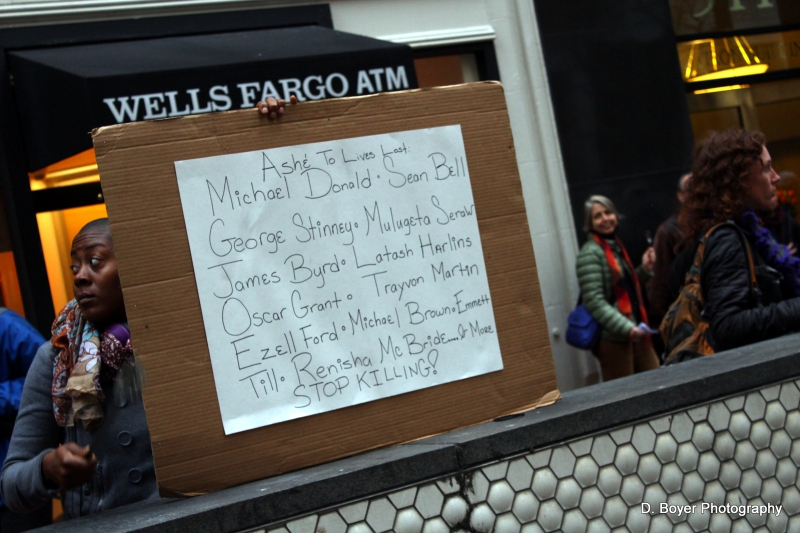 WELLS FARGO ATM
Ashé To Lives Lost:
Michael Donald • Sean Bell
George Stinney • Mulugeta Seraw
James Byrd • Latash Harlins
Oscar Grant • Trayvon Martin
Ezell Ford • Michael Brown • Emmett
Till • Renisha McBride....& More
STOP KILLING!
D. Boyer Photography